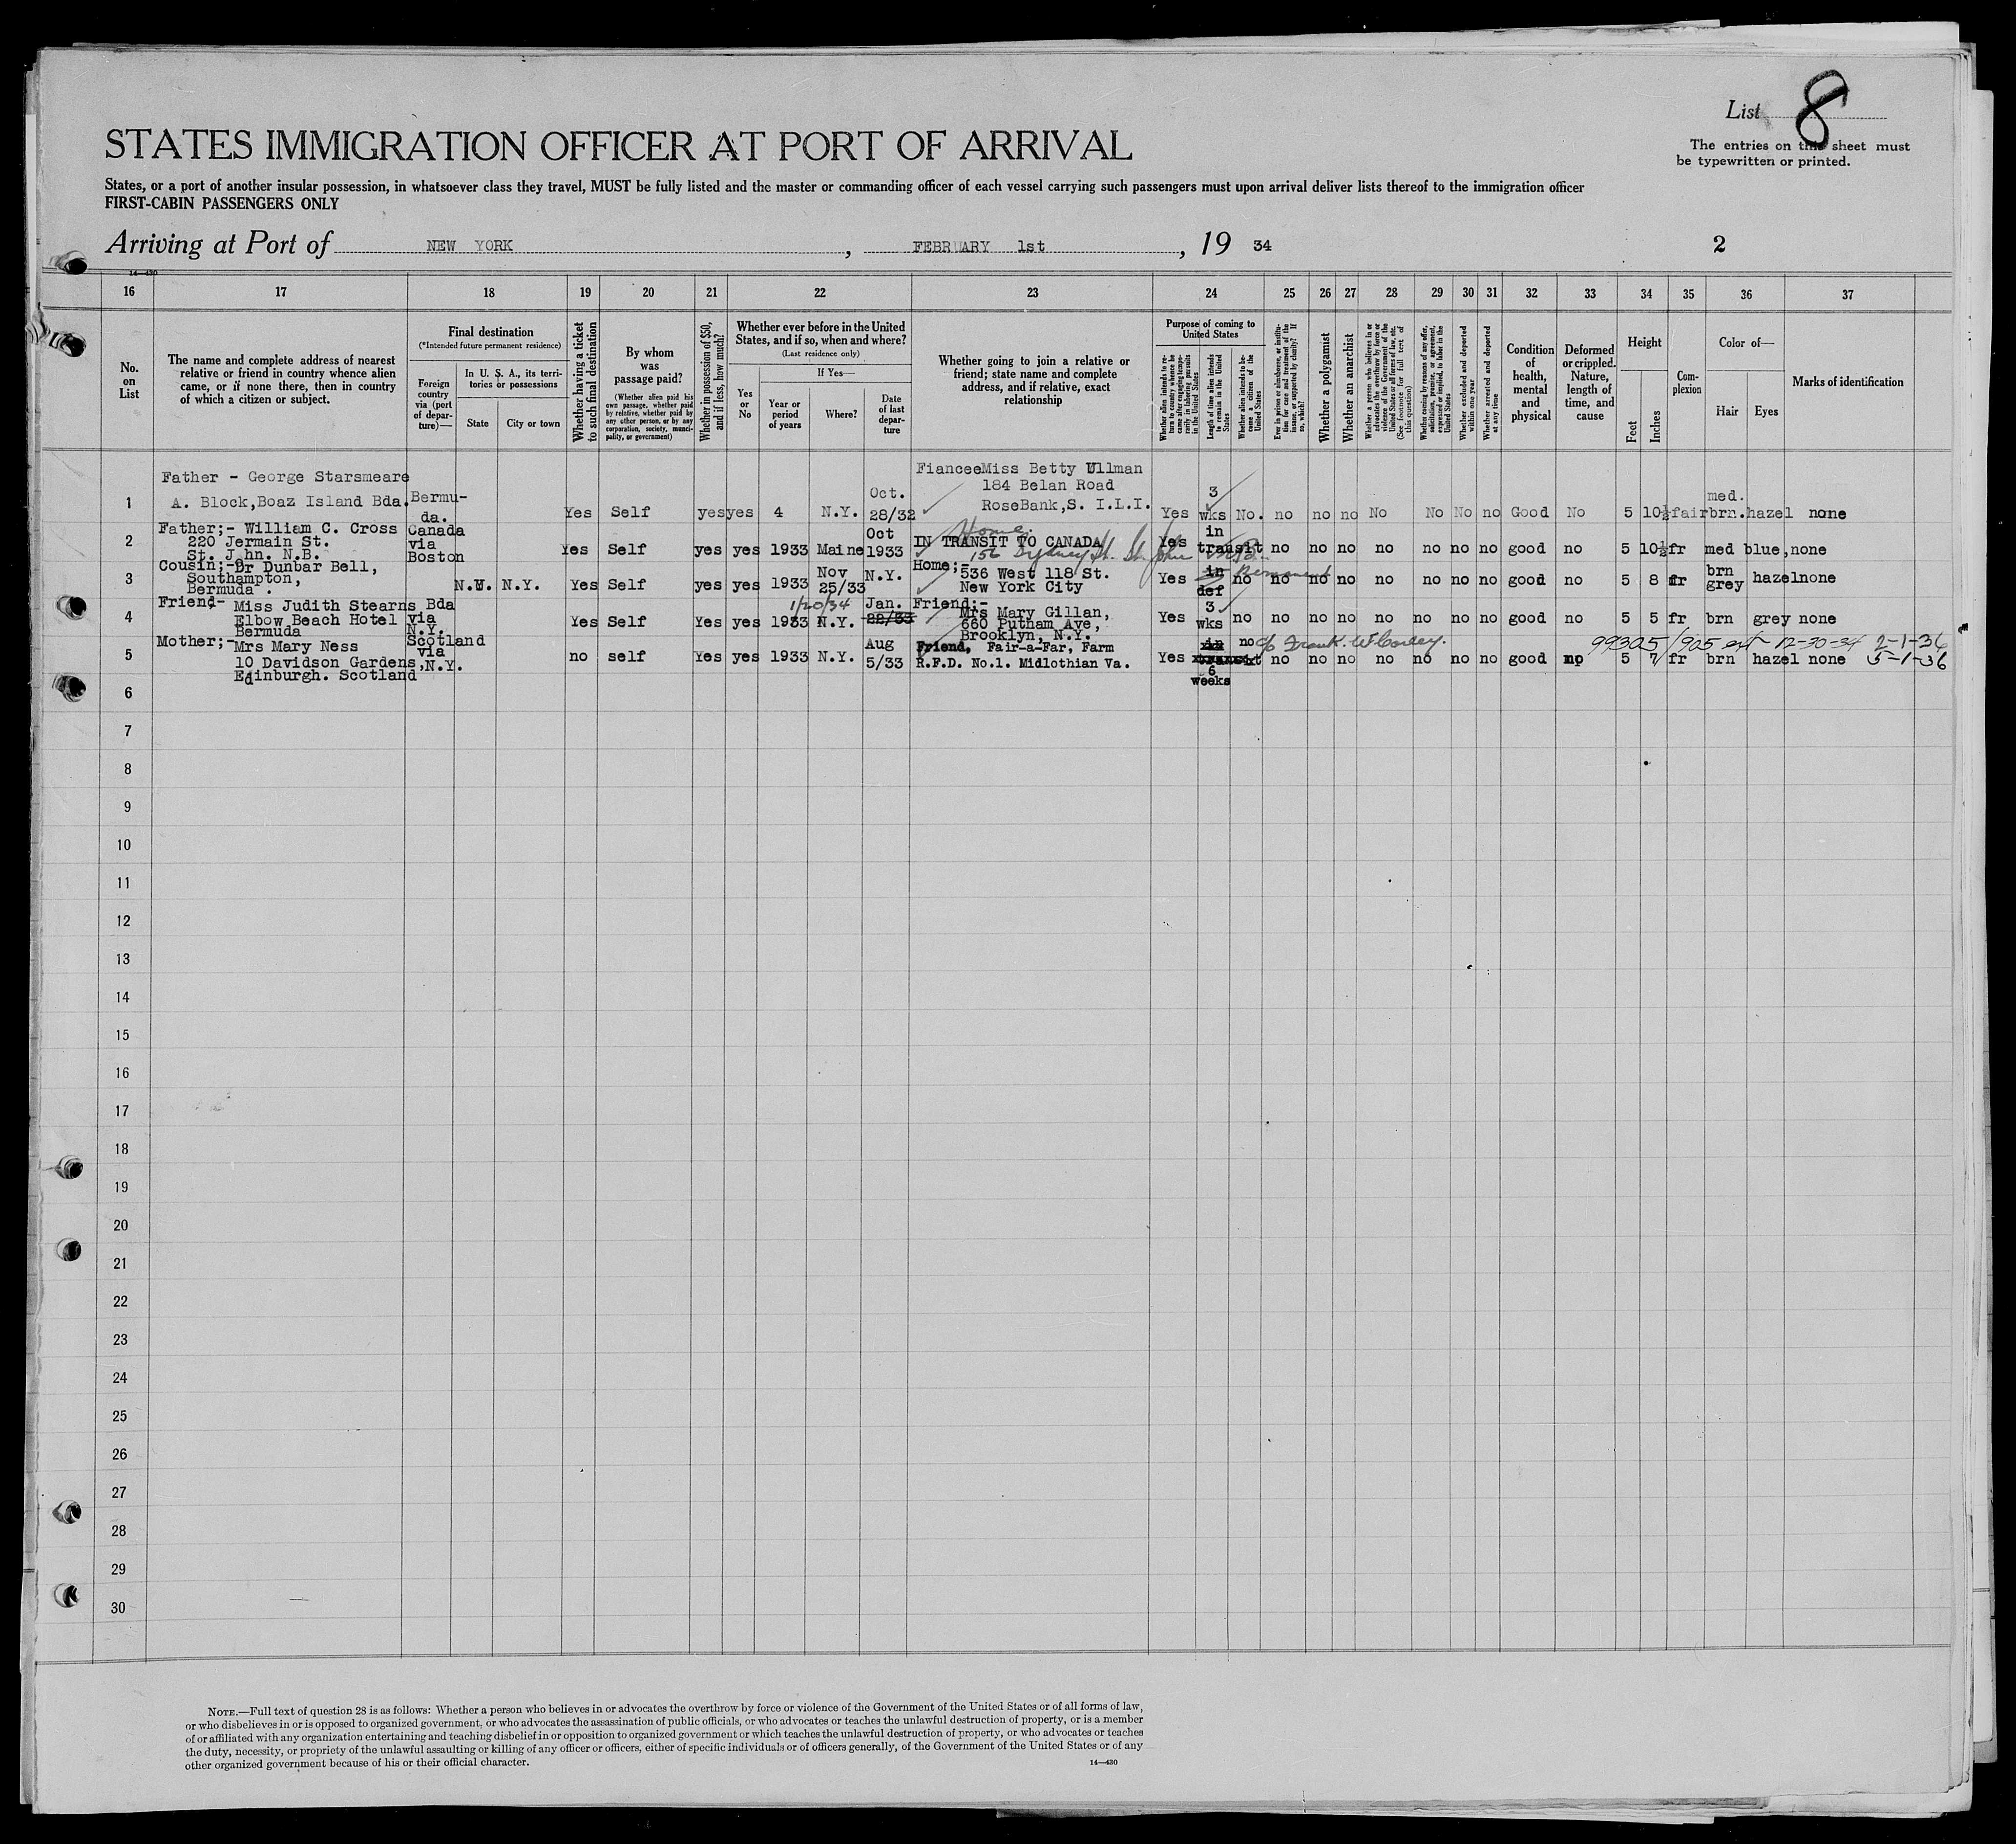 List 8
The entries on this sheet must
be typewritten or printed.
STATES IMMIGRATION OFFICER AT PORT OF ARRIVAL
States, or a port of another insular possession, in whatsoever class they travel, MUST be fully listed and the master or commanding officer of each vessel carrying such passengers must upon arrival deliver lists thereof to the immigration officer
FIRST-CABIN PASSENGERS ONLY
Arriving at Port of NEW YORK, FEBRUARY 1st, 19 34
2
14—430
16 17 18 19 20 21 22 23 24 25 26 27 28 29 30 31 32 33 34 35 36 37
No. on List
The name and complete address of nearest relative or friend in country whence alien came, or if none there, then in country of which a citizen or subject.
Final destination
(*Intended future permanent residence)
Foreign country via (port of departure)—
In U. S. A., its territories or possessions
State
City or town
Whether having a ticket to such final destination
By whom was passage paid?
(Whether alien paid his own passage, whether paid by relative, whether paid by any other person, or by any corporation, society, municipality, or government)
Whether in possession of $50, and if less, how much?
Whether ever before in the United States, and if so, when and where?
(Last residence only)
Yes or No
If Yes—
Year or period of years
Where?
Date of last departure
Whether going to join a relative or friend; state name and complete address, and if relative, exact relationship
Purpose of coming to United States
Whether alien intends to return to country whence he came after engaging temporarily in laboring pursuits in the United States
Length of time alien intends to remain in the United States
Whether alien intends to become a citizen of the United States
Ever in prison or almshouse, or institution for care and treatment of the insane, or supported by charity? If so, which?
Whether a polygamist
Whether an anarchist
Whether a person who believes in or advocates the overthrow by force or violence of the Government of the United States or all forms of law, etc. (See footnote for full text of this question)
Whether coming by reasons of any offer, solicitation, promise, or agreement, expressed or implied, to labor in the United States
Whether excluded and deported within one year
Whether arrested and deported at any time
Condition of health, mental and physical
Deformed or crippled. Nature, length of time, and cause
Height
Feet
Inches
Complexion
Color of—
Hair
Eyes
Marks of identification
1 Father - George Starsmeare
A. Block,Boaz Island Bda. Bermuda. Yes Self yes yes 4 N.Y. Oct. 28/32
Fiancee Miss Betty Ullman
184 Belan Road
RoseBank,S. I.L.I.
Yes 3 wks No. no no no No No No no Good No 5 10½ fair med. brn. hazel none
2 Father;- William C. Cross
220 Jermain St.
St. J hn. N.B.
Canada via Boston Yes Self yes yes 1933 Maine Oct 1933
Home.
IN TRANSIT TO CANADA
156 Sydney St. St. John N.B.
Yes in transit no no no no no no no good no 5 10½ fr med blue, none
3 Cousin;- Dr Dunbar Bell,
Southampton,
Bermuda .
N.Y. N.Y. Yes Self yes yes 1933 Nov 25/33 N.Y.
Home;-
536 West 118 St.
New York City
Yes in def no Permanent no no no no no no no good no 5 8 fr brn grey hazel none
4 Friend- Miss Judith Stearns
Elbow Beach Hotel
Bermuda
Bda via N.Y. Yes Self Yes yes 1933 1/20/34 N.Y. Jan. 22/33
Friend;-
Mrs Mary Gillan,
660 Putnam Ave,
Brooklyn, N.Y.
Yes 3 wks no no no no no no no no good no 5 5 fr brn grey none
5 Mother;- Mrs Mary Ness
10 Davidson Gardens,
Edinburgh. Scotland
Scotland via N.Y. no self Yes yes 1933 N.Y. Aug 5/33
Friend, Fair-a-Far, Farm
R.F.D. No.1. Midlothian Va.
c/o Frank W.
Yes in transit 6 weeks no no no no no no no no good no 5 7 fr brn hazel none
99305/905 ext 12-30-34 2-1-36
5-1-36
6
7
8
9
10
11
12
13
14
15
16
17
18
19
20
21
22
23
24
25
26
27
28
29
30
NOTE.—Full text of question 28 is as follows: Whether a person who believes in or advocates the overthrow by force or violence of the Government of the United States or of all forms of law,
or who disbelieves in or is opposed to organized government, or who advocates the assassination of public officials, or who advocates or teaches the unlawful destruction of property, or is a member
of or affiliated with any organization entertaining and teaching disbelief in or opposition to organized government or which teaches the unlawful destruction of property, or who advocates or teaches
the duty, necessity, or propriety of the unlawful assaulting or killing of any officer or officers, either of specific individuals or of officers generally, of the Government of the United States or of any
other organized government because of his or their official character.
14—430